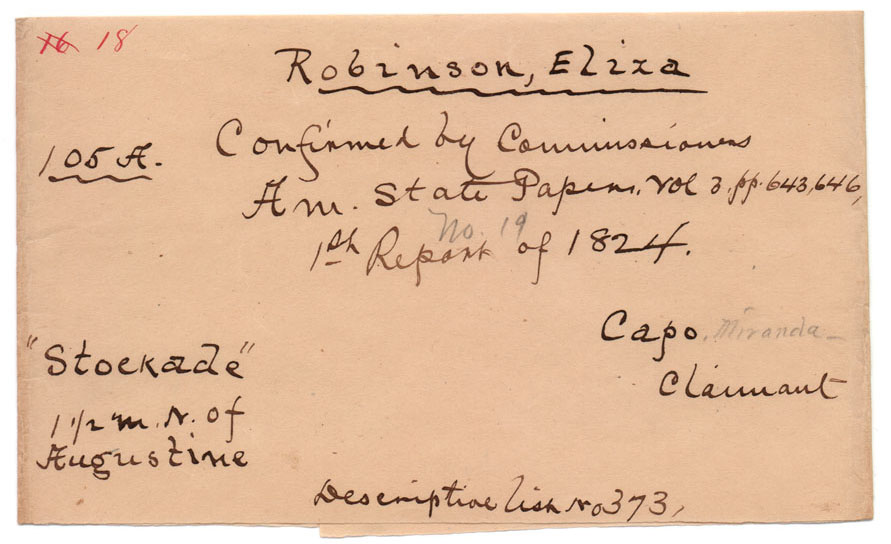 16 18
Robinson, Eliza
105 A. Confirmed by Commissioners
Am. State Papers, Vol 3. pp. 643, 646,
No. 19
1st Report of 1824.
Capo. Miranda
Claimant
"Stockade"
1 1/2 m. N. of
Augustine
Descriptive list No 373,